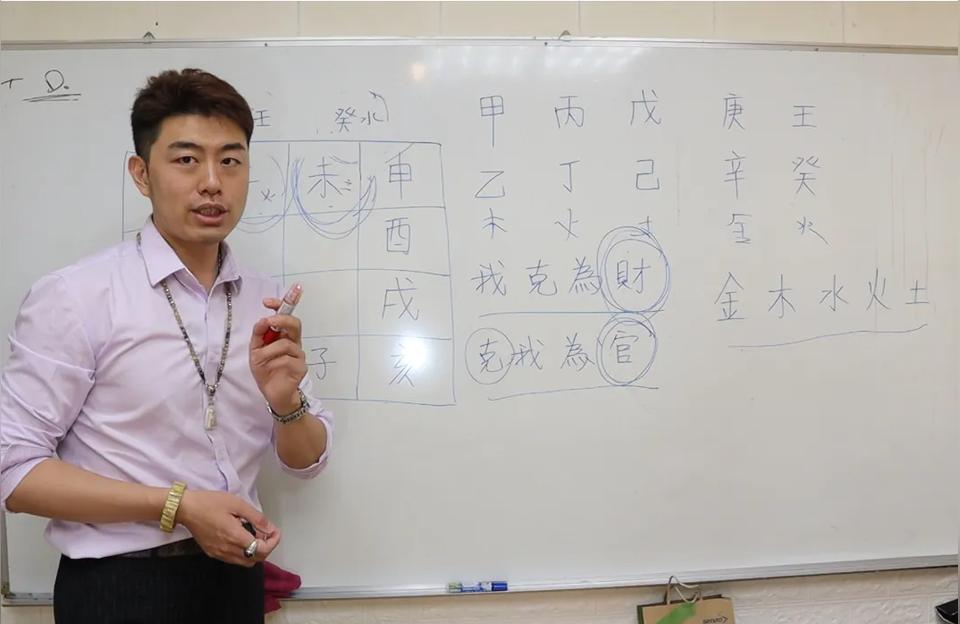 D.
癸水
未 申
酉
戌
子 亥
甲 丙 戊 庚 王
乙 丁 己 辛 癸
木 火 土 金 火
我克為財
克我為官
金木水火土